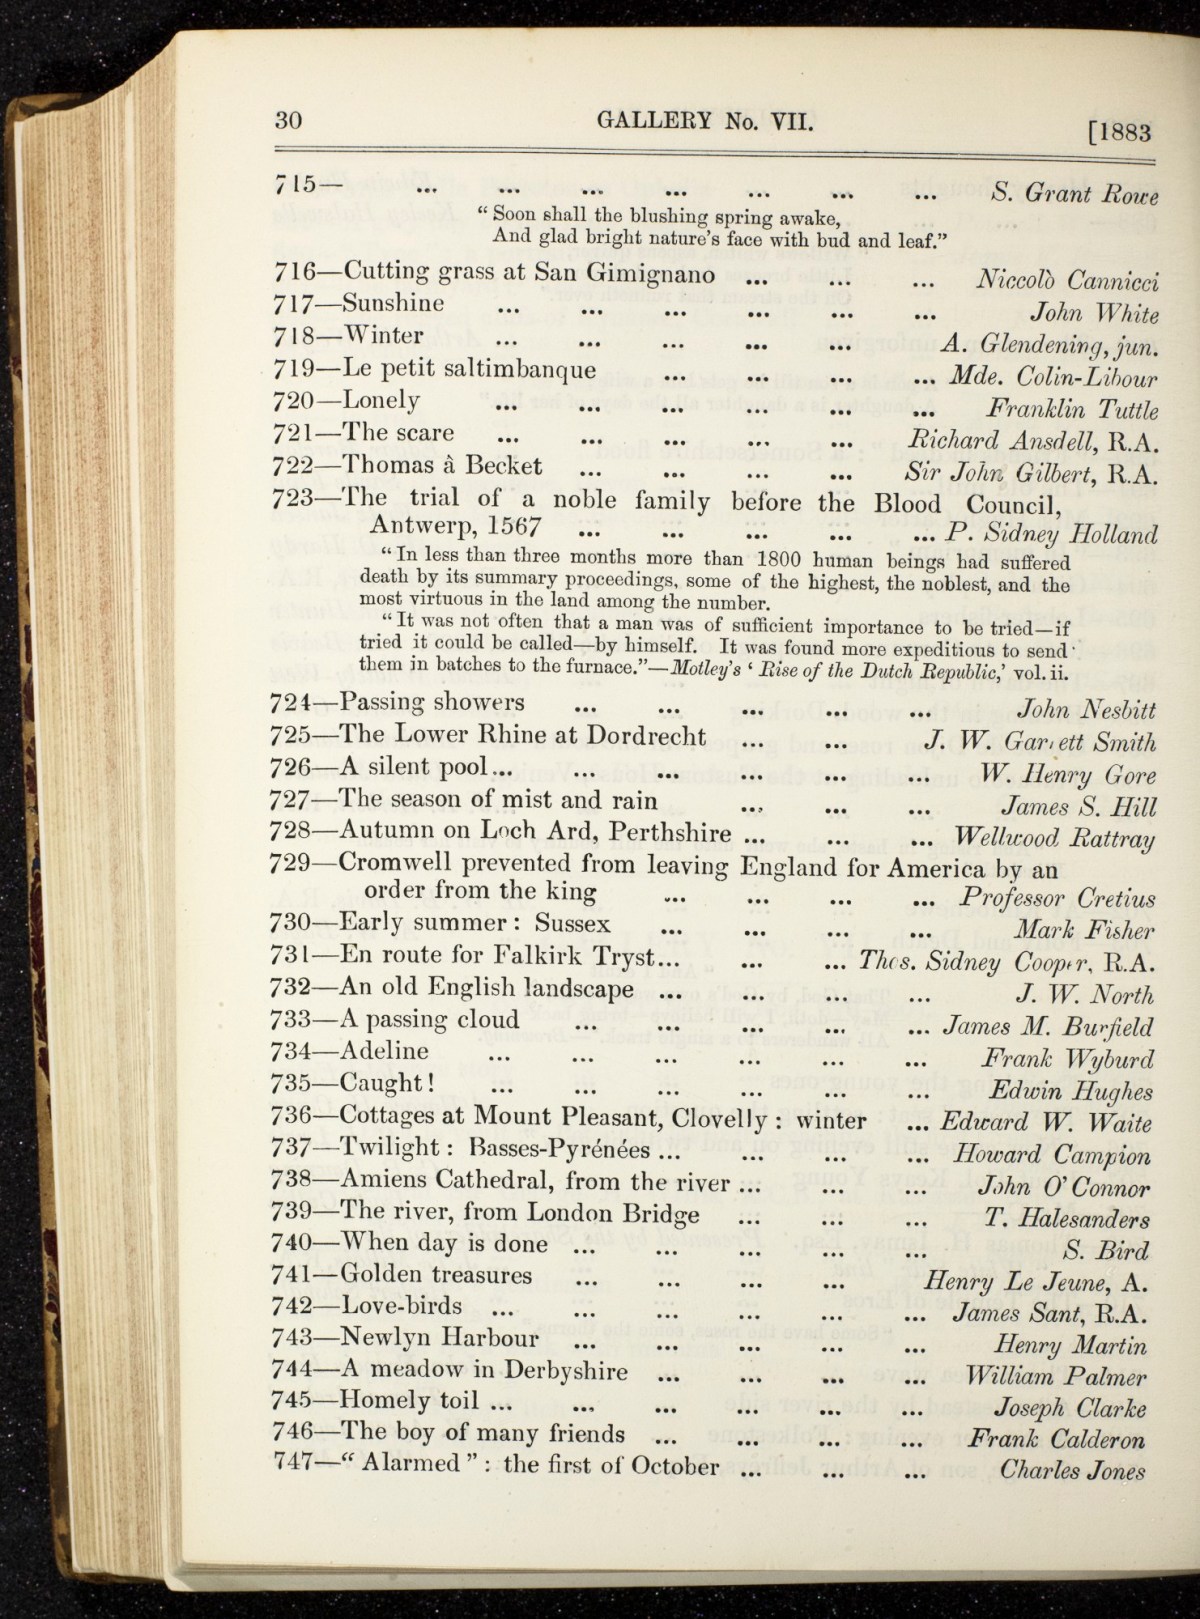 30 GALLERY No. VII. [1883
715— ... ... ... ... ... ... ... S. Grant Rowe
“ Soon shall the blushing spring awake,
And glad bright nature’s face with bud and leaf.”
716—Cutting grass at San Gimignano ... ... ... Niccolò Cannicci
717—Sunshine ... ... ... ... ... ... John White
718—Winter ... ... ... ... ... A. Glendening, jun.
719—Le petit saltimbanque ... ... ... ... Mde. Colin-Libour
720—Lonely ... ... ... ... ... ... Franklin Tuttle
721—The scare ... ... ... ... ... Richard Ansdell, R.A.
722—Thomas à Becket ... ... ... ... Sir John Gilbert, R.A.
723—The trial of a noble family before the Blood Council,
Antwerp, 1567 ... ... ... ... ... P. Sidney Holland
“ In less than three months more than 1800 human beings had suffered
death by its summary proceedings, some of the highest, the noblest, and the
most virtuous in the land among the number.
“ It was not often that a man was of sufficient importance to be tried—if
tried it could be called—by himself. It was found more expeditious to send
them in batches to the furnace.”—Motley’s ‘ Rise of the Dutch Republic,’ vol. ii.
724—Passing showers ... ... ... ... ... John Nesbitt
725—The Lower Rhine at Dordrecht ... ... J. W. Garrett Smith
726—A silent pool ... ... ... ... ... ... W. Henry Gore
727—The season of mist and rain ... ... ... James S. Hill
728—Autumn on Loch Ard, Perthshire ... ... ... Wellwood Rattray
729—Cromwell prevented from leaving England for America by an
order from the king ... ... ... ... Professor Cretius
730—Early summer : Sussex ... ... ... ... Mark Fisher
731—En route for Falkirk Tryst... ... ... Thos. Sidney Cooper, R.A.
732—An old English landscape ... ... ... ... J. W. North
733—A passing cloud ... ... ... ... ... James M. Burfield
734—Adeline ... ... ... ... ... ... Frank Wyburd
735—Caught ! ... ... ... ... ... ... Edwin Hughes
736—Cottages at Mount Pleasant, Clovelly : winter ... Edward W. Waite
737—Twilight : Basses-Pyrénées ... ... ... ... Howard Campion
738—Amiens Cathedral, from the river ... ... ... John O’Connor
739—The river, from London Bridge ... ... ... T. Halesanders
740—When day is done ... ... ... ... ... S. Bird
741—Golden treasures ... ... ... ... Henry Le Jeune, A.
742—Love-birds ... ... ... ... ... ... James Sant, R.A.
743—Newlyn Harbour ... ... ... ... ... Henry Martin
744—A meadow in Derbyshire ... ... ... ... William Palmer
745—Homely toil ... ... ... ... ... ... Joseph Clarke
746—The boy of many friends ... ... ... ... Frank Calderon
747—“ Alarmed ” : the first of October ... ... ... Charles Jones